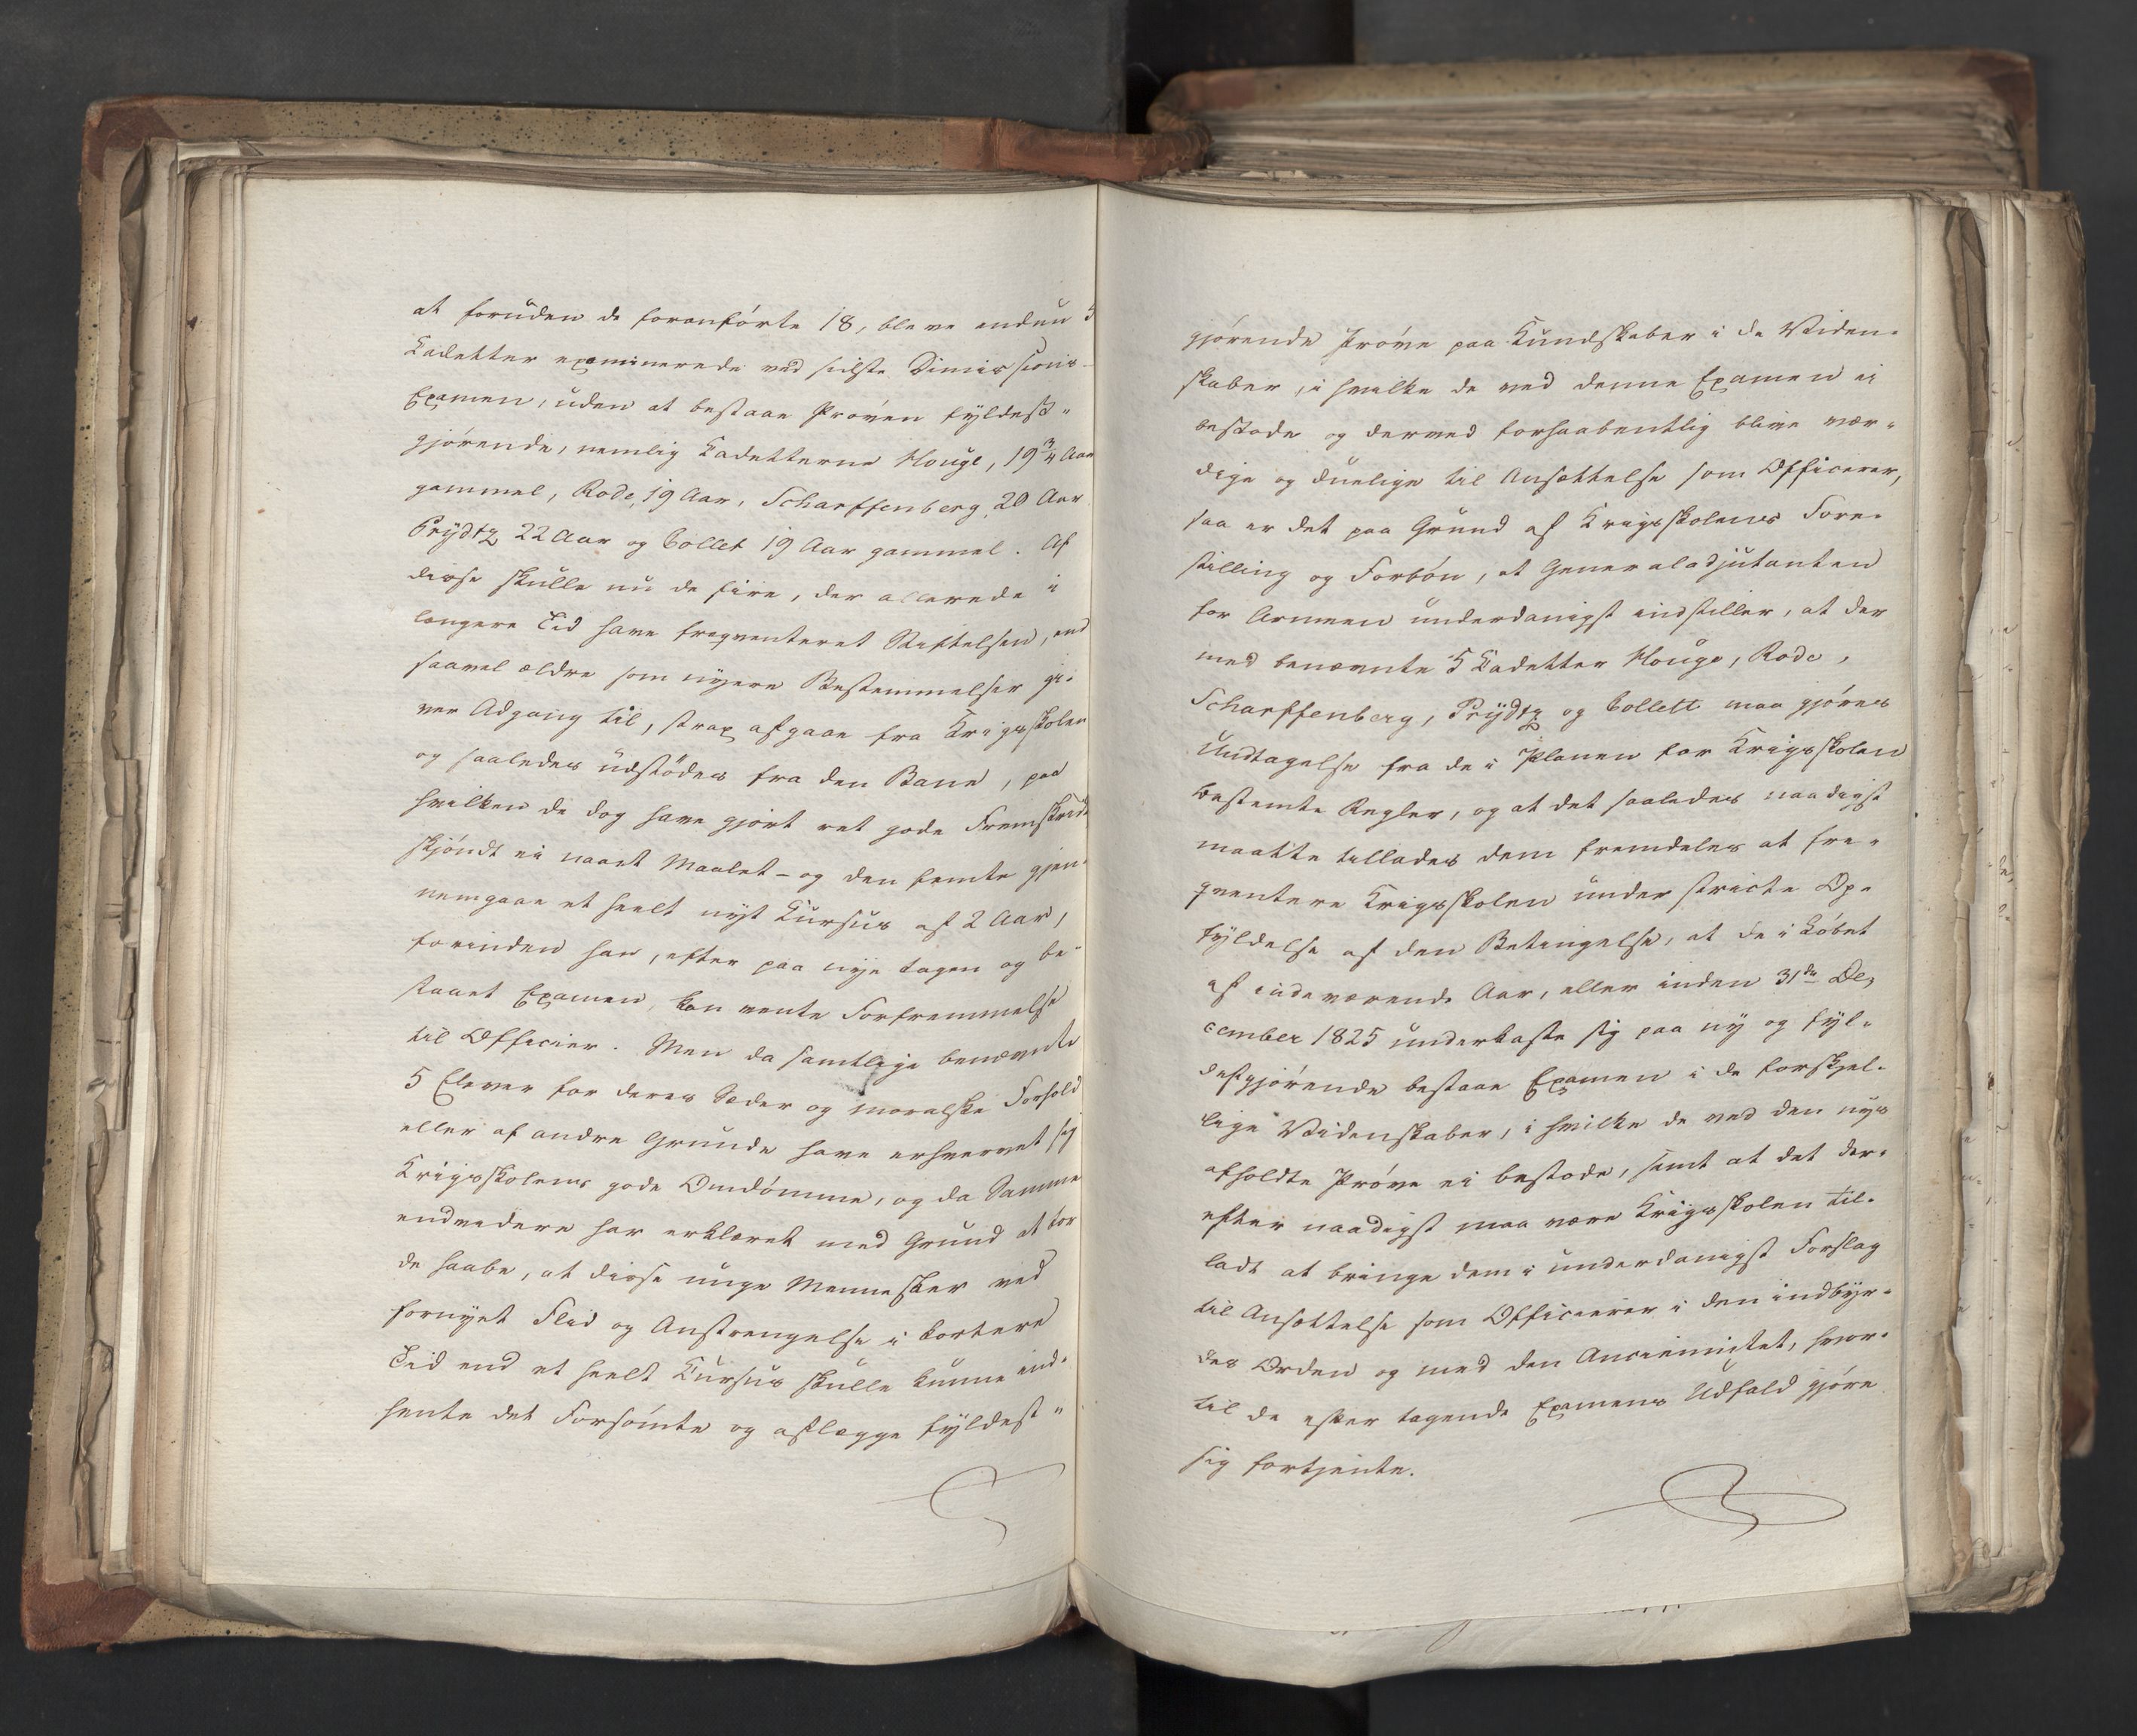 at foruden de foranførte 18, bleve endnu 5
Kadetter examinerede ved sidste Dimissions-
Examen, uden at bestaae Prøven fyldest-
gjørende, nemlig Kadetterne Houge, 19 3/4 Aar
gammel, Rode, 19 Aar, Scharffenberg 20 Aar
Prydtz 22 Aar og Collet 19 Aar gammel. Af
disse skulle nu de fire, der allerede i
længere Tid have freqventeret Stiftelsen, end
saavel ældre som nyere Bestemmelser gi-
ver Adgang til, strax afgaae fra Krigsskolen
og saaledes udstødes fra den Bane, paa
hvilken de dog have gjort ret gode Fremskridt
skjøndt ei naaet Maalet - og den femte gjen-
nemgaae et heelt nyt Kursus af 2 Aar,
forinden han, efter paa nye tagen og be-
staaet Examen, kan vente Forfremmelse
til Officier. Men da samtlige benævnte
5 Elever for deres Sæder og moralske Forhold
eller af andre Grunde have erhvervet sig
Krigsskolens gode Omdømme, og da Samme
endvidere har erklæret med Grund at tør
de haabe, at disse unge Mennesker ved
fornyet Flid og Anstrengelse i kortere
Tid end et heelt Kursus skulle kunne ind-
hente det Forsømte og aflægge fyldest-
gjørende Prøve paa Kundskaber i de Viden-
skaber, i hvilke de ved denne Examen ei
bestode og derved forhaabentlig blive vær-
dige og duelige til Ansættelse som Officerer,
saa er det paa Grund af Krigsskolens Fore-
stilling og Forbøn, at Generaladjutanten
for Armeen underdanigst indstiller, at der
med benævnte 5 Kadetter Houge, Rode,
Scharffenberg, Prydtz og Collett maa gjøres
Undtagelse fra de i Planen for Krigsskolen
bestemte Regler, og at det saaledes naadigst
maatte tillades dem fremdeles at fre-
qventere Krigsskolen under stricte Op-
fyldelse af den Betingelse, at de i Løbet
af indeværende Aar, eller inden 31de De-
cember 1825 underkaste sig paa ny og fyl-
destgjørende bestaae Examen i de forskjel-
lige Videnskaber, i hvilke de ved den nys
afholdte Prøve ei bestode, samt at det der-
efter naadigst maa være Krigsskolen til-
ladt at bringe dem i underdanigst Forslag
til Ansættelse som Officierer i den indbyr-
des Orden og med den Anciennitet, hvor-
til de efter tagende Examens Udfald gjøre
sig fortjente.